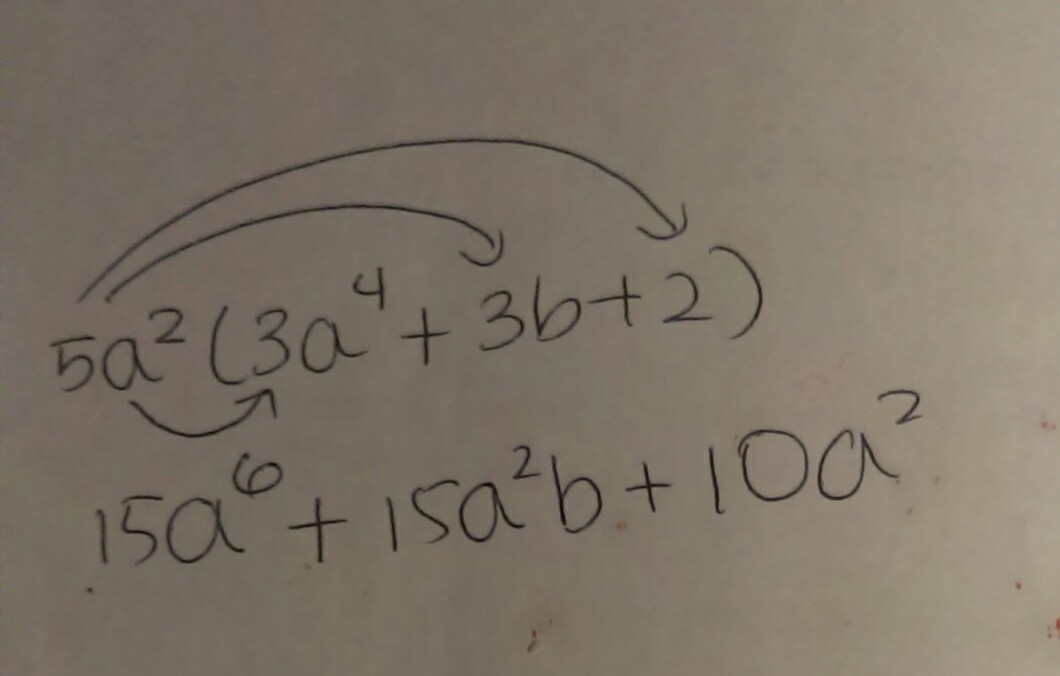 5a²(3a⁴+3b+2)
15a⁶+15a²b+10a²